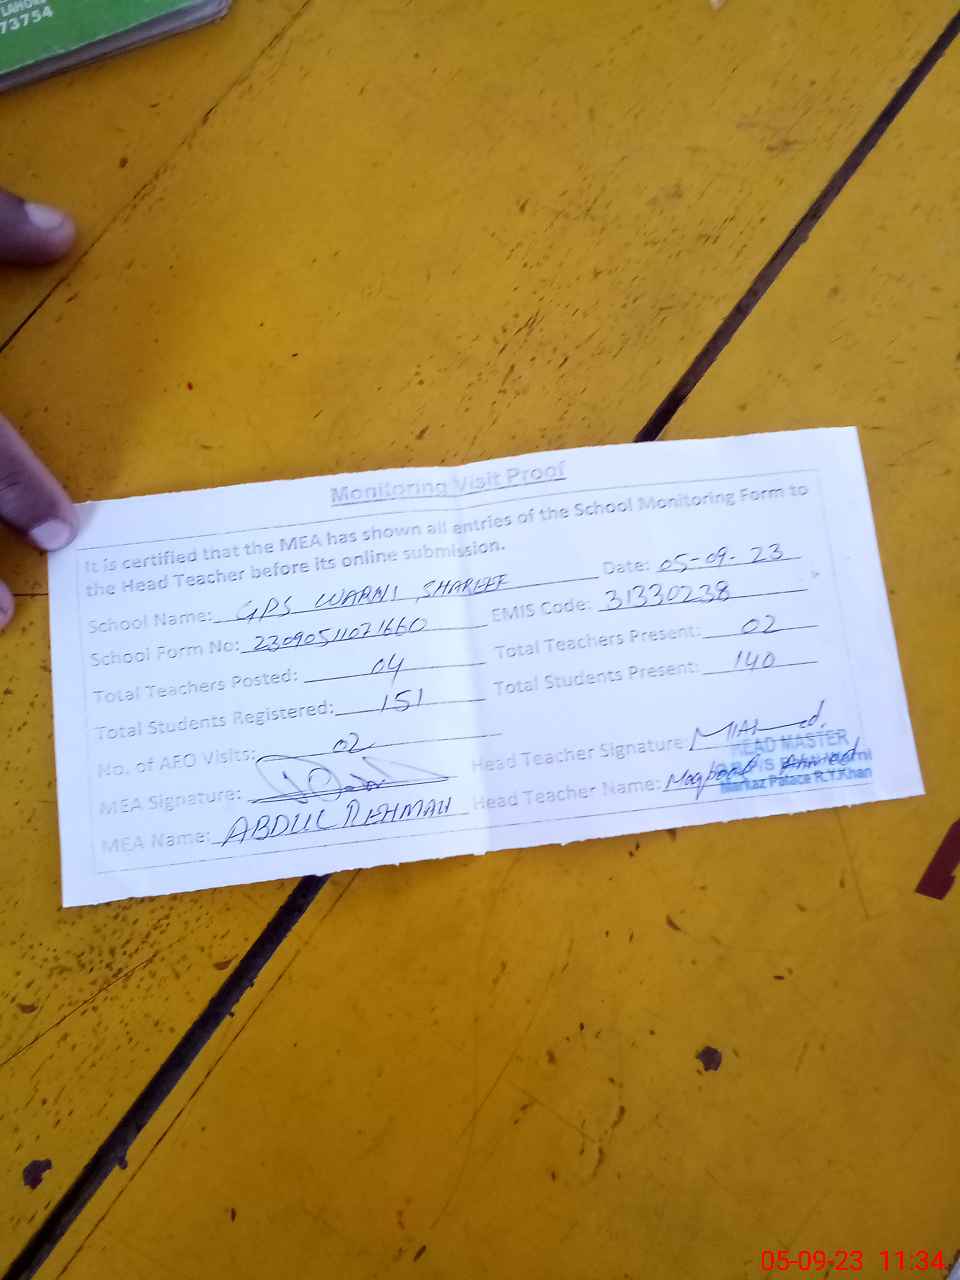 LAHORE
73754
Monitoring Visit Proof
It is certified that the MEA has shown all entries of the School Monitoring Form to
the Head Teacher before its online submission.
School Name: GPS WARNI SHAREEF Date: 05-09-23
School Form No: 23090511071660 EMIS Code: 31330238
Total Teachers Posted: 04 Total Teachers Present: 02
Total Students Registered: 151 Total Students Present: 140
No. of AEO Visits: 02
MEA Signature: Head Teacher Signature:
HEAD MASTER
MEA Name: ABDUL REHMAN Head Teacher Name: Maqbool Ahmed
Markaz Palace R.Y.Khan
05-09-23 11:34